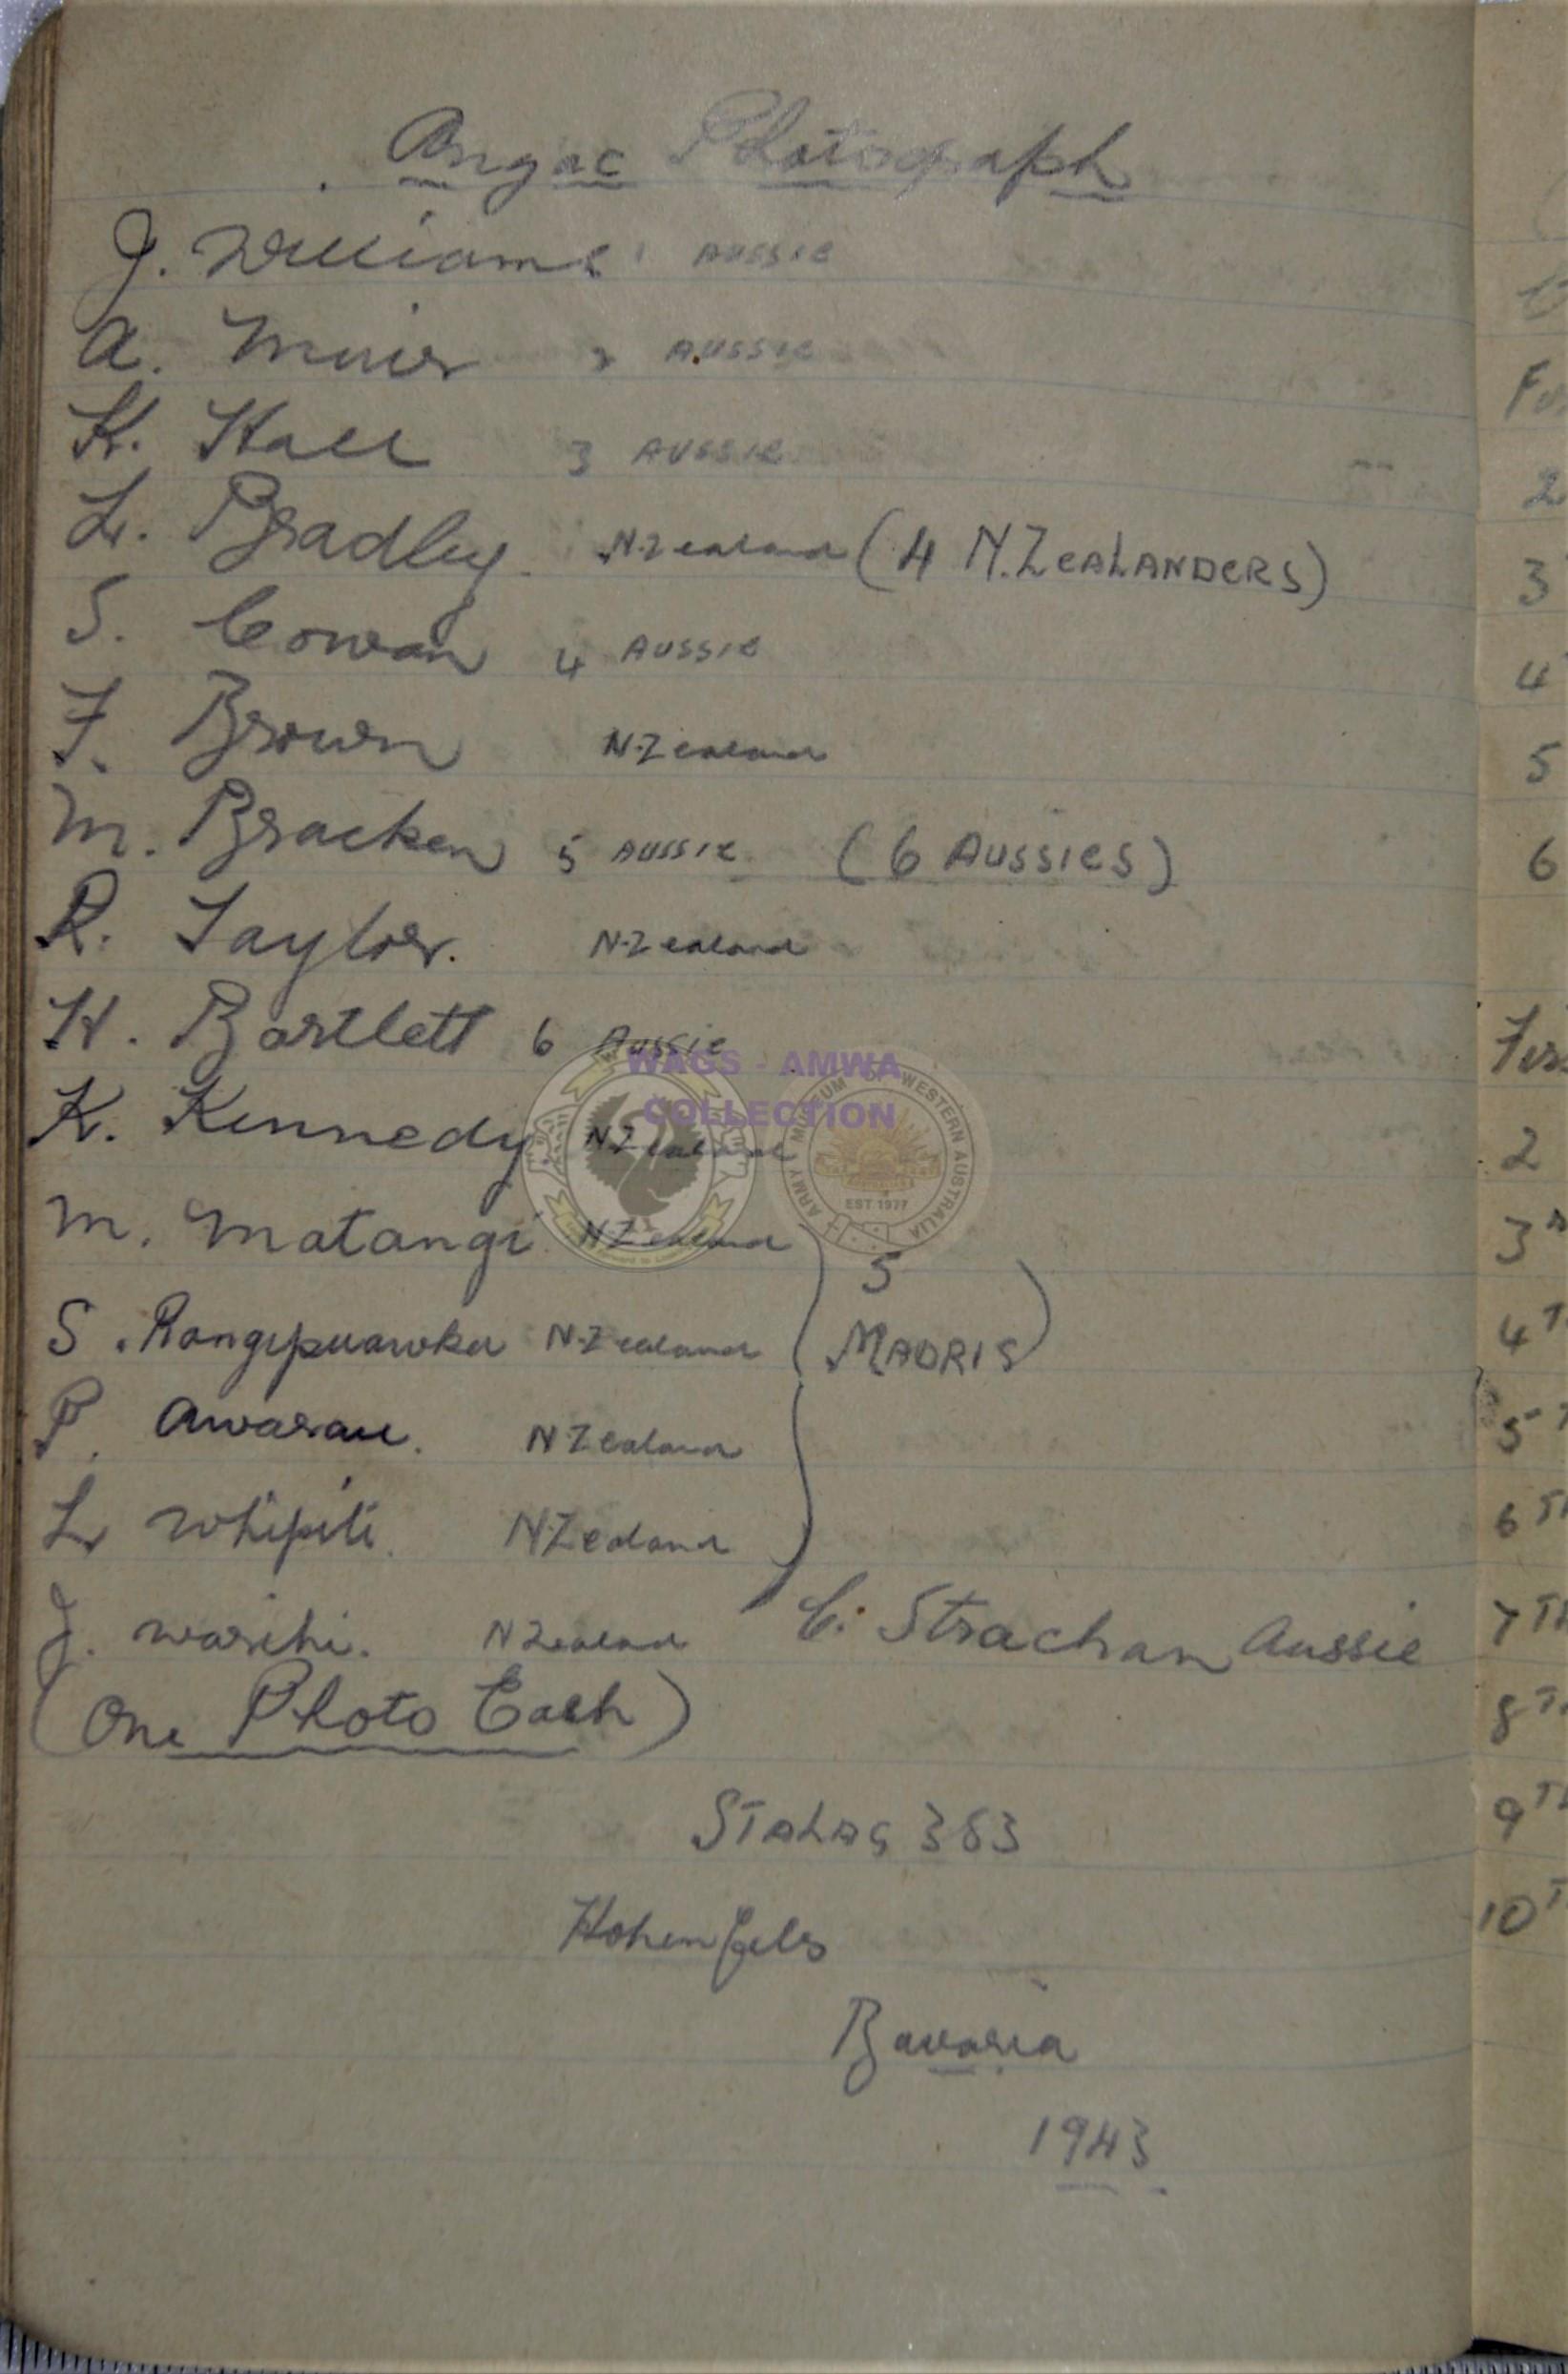 Anzac Photograph
J. Williams 1 AUSSIE
A. Muier 2 AUSSIE
K. Hall 3 AUSSIE
L. Bradley N.Zealand (4 N.ZEALANDERS)
S. Cowan 4 AUSSIE
F. Brown N.Zealand
M. Bracken 5 AUSSIE (6 AUSSIES)
R. Taylor. N.Zealand
H. Bartlett 6 Aussie
K. Kennedy NZealand
M. Matangi NZealand
5
S. Rangipuawka N.Zealand (MAORIS)
P. Awarau. N.Zealand
L Whipiti. NZealand
J. Warihi. NZealand C. Strachan Aussie
(One Photo Each)
STALAG 383
Hohenfels
Bavaria
1943
WAGS - AMWA
COLLECTION
ARMY MUSEUM OF WESTERN AUSTRALIA
EST 1977
2
3
4
5
6
2
3
4
5
6
7
8
9
10